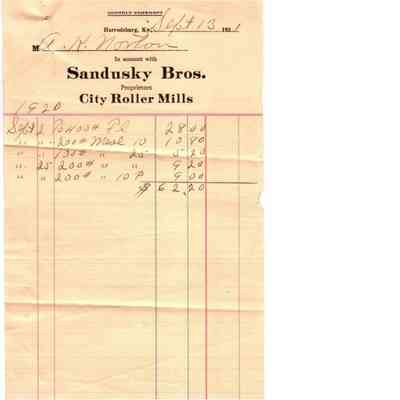 MONTHLY STATEMENT
Harrodsburg, Ky., Sept 13 1921
M A. H. Norton
In account with
Sandusky Bros.
Proprietors
City Roller Mills
1920
Sept 2 400# 28 00
" " 200# Meal 10 10 80
" " 130# " 25 5 20
" 25 200# " " 9 20
" " 200# " 10 P 9 00
$ 62.20